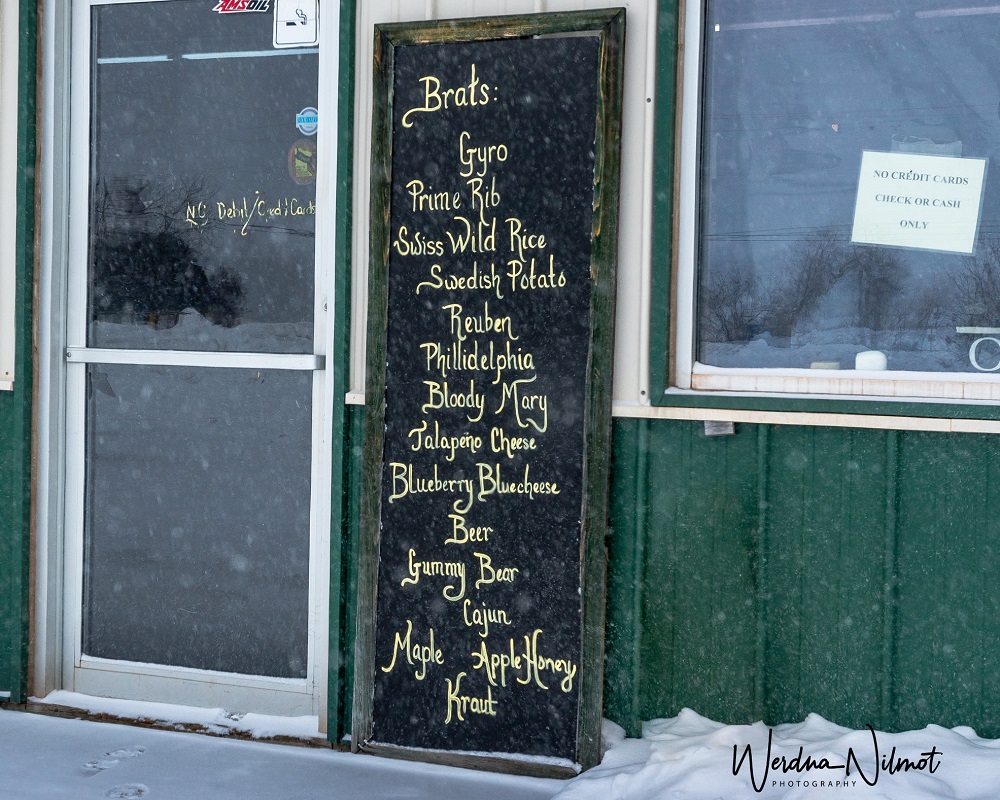 AMSOIL
No Debit/Credit Cards
Brats:
Gyro
Prime Rib
Swiss Wild Rice
Swedish Potato
Reuben
Phillidelphia
Bloody Mary
Jalapeño Cheese
Blueberry Bluecheese
Beer
Gummy Bear
Cajun
Maple AppleHoney
Kraut
NO CREDIT CARDS
CHECK OR CASH
ONLY
O
Werdna Nilmot
PHOTOGRAPHY